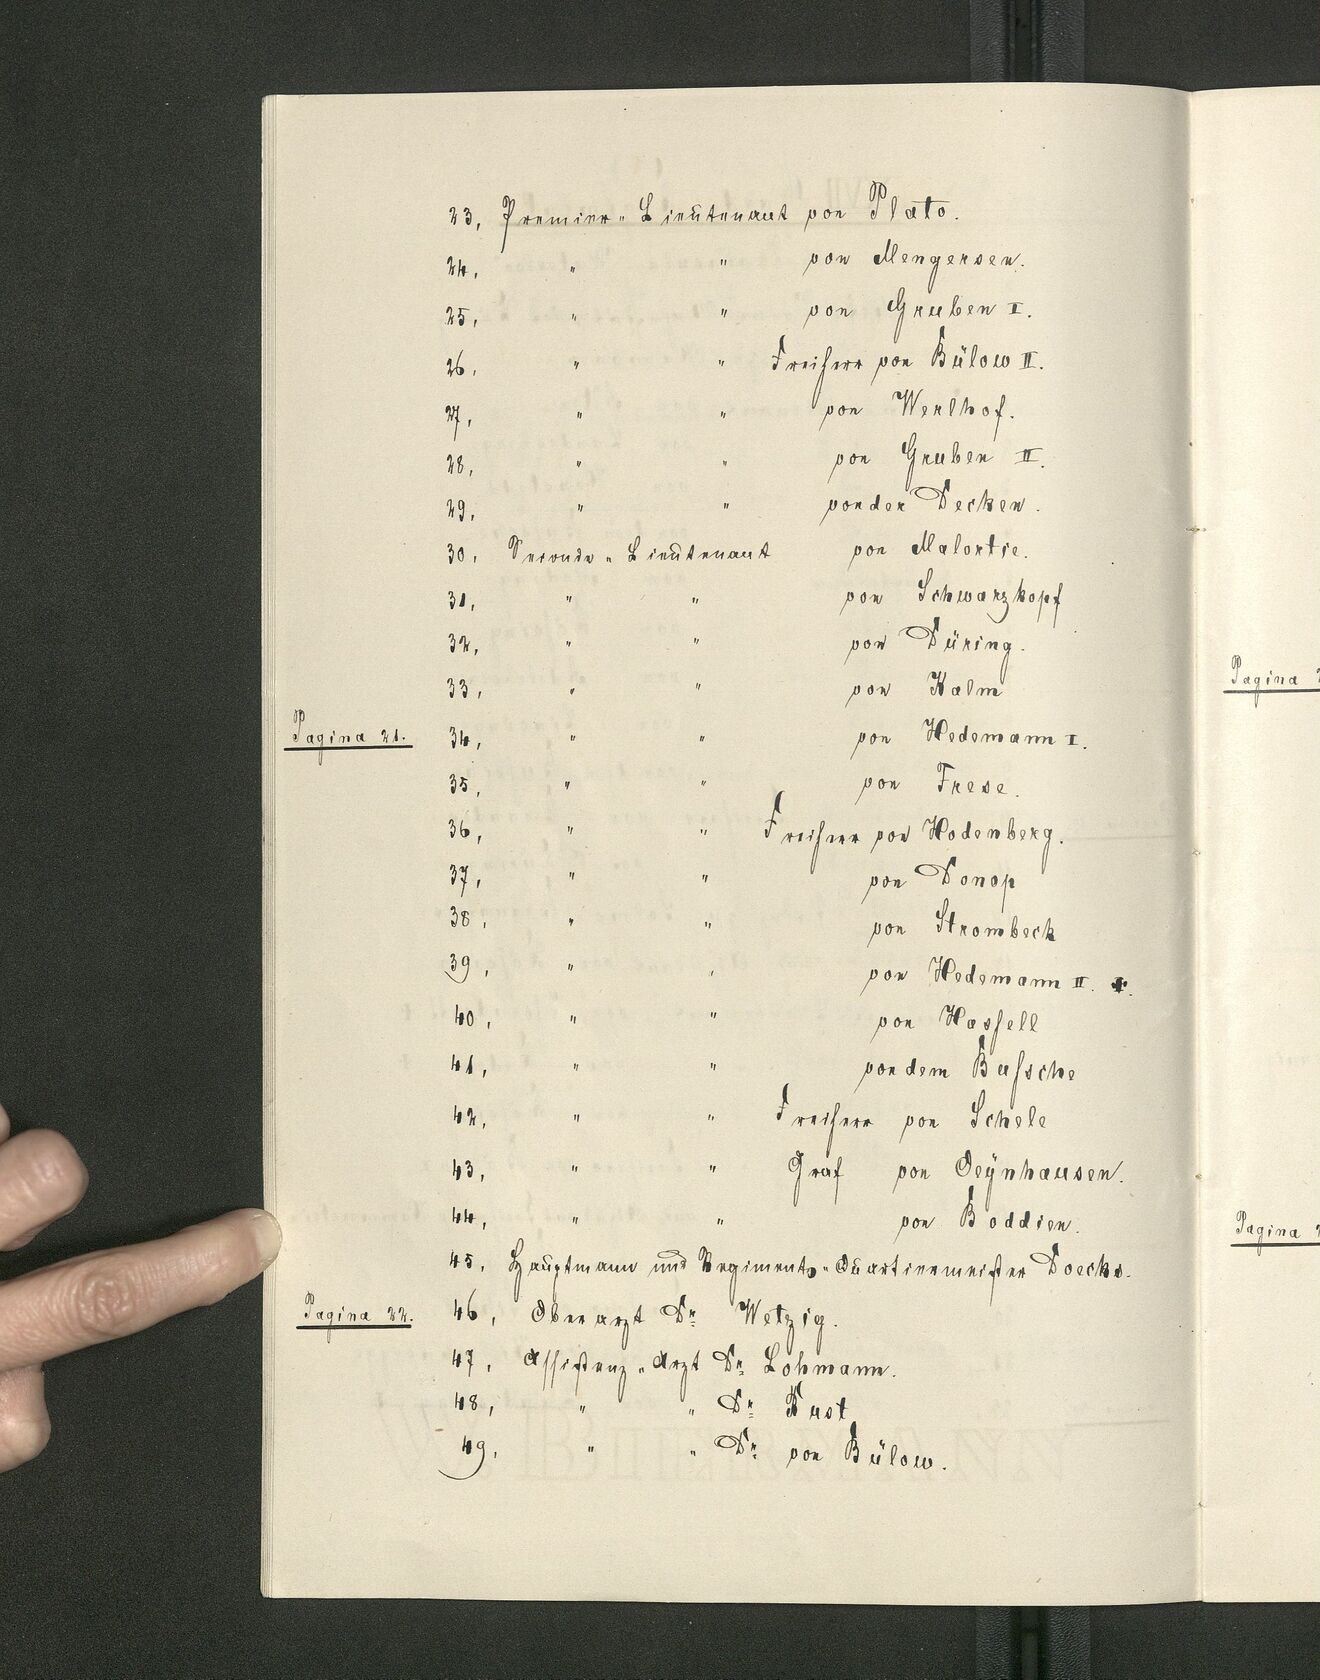 23, Premier-Lieutenant von Plato.
24, " " von Mengersen.
25, " " von Gruben I.
26, " " Freiherr von Bülow II.
27, " " von Werlhof.
28, " " von Gruben II.
29, " " von der Decken.
30, Seconde-Lieutenant von Malortie.
31, " " von Schwarzkopf
32, " " von Düring.
33, " " von Kalm
Pagina 21. 34, " " von Hedemann I.
35, " " von Frese.
36, " " Freiherr von Hodenberg.
37, " " von Donop
38, " " von Strombeck
39, " " von Hedemann II. †.
40, " " von Hassell
41, " " von dem Bussche
42, " " Freiherr von Schele
43, " " Graf von Oeÿnhausen.
44, " " von Boddien.
45, Hauptmann und Regiments-Quartiermeister Doecks.
Pagina 22. 46, Oberarzt Dr Wetzig.
47, Assistenz-Arzt Dr Lohmann.
48, " " Dr Kust
49, " " Dr von Bülow.
Pagina
Pagina